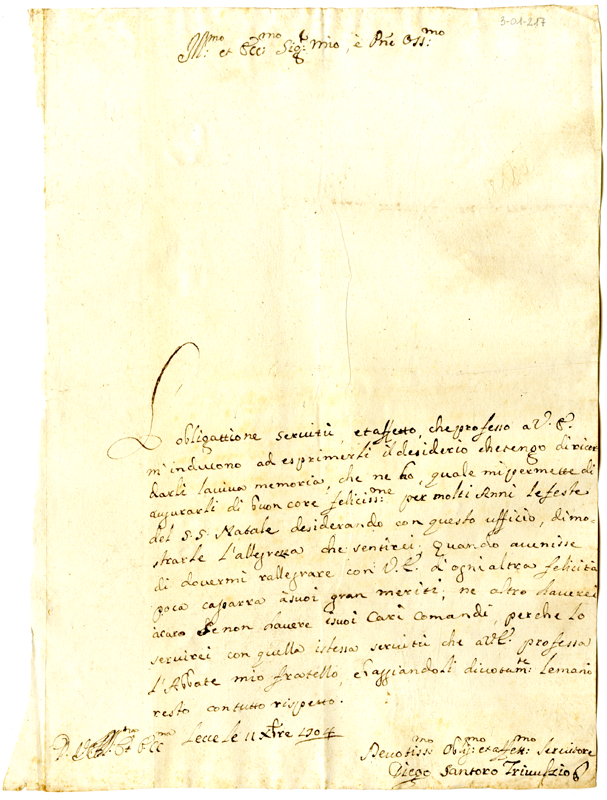 3-01-217
Ill:mo et Ecc:mo Sig:r mio, è Pne Oss:mo
L'obligattione servitù, et affetto, che professo a V. E.
m'inducono ad esprimerli il desiderio che tengo di ricor
darli la viva memoria, che ne ho, quale mi permette di
augurarli di buon core feliciss:me per molti Anni le feste
del S.S. Natale desiderando con questo ufficio, dimo-
strarle l'allegrezza che sentirei, quando avenisse
di dovermi rallegrare con V.E. d'ogni altra felicità
poca caparra à suoi gran meriti; ne altro haverei
à caro se non havere i suoi Cari Comandi, perche lo
servirei con quella istessa servitù che a V.E. professa
l'Abbate mio fratello, e baggiandoli divotam:te le mani
resto con tutto rispetto.
Lecce le 11 Xbre 1704
D. V. Ill:ma et Ecc:ma
Devotiss:mo Oblig:mo et affett:mo Servitore
Diego Santoro Trivulzio